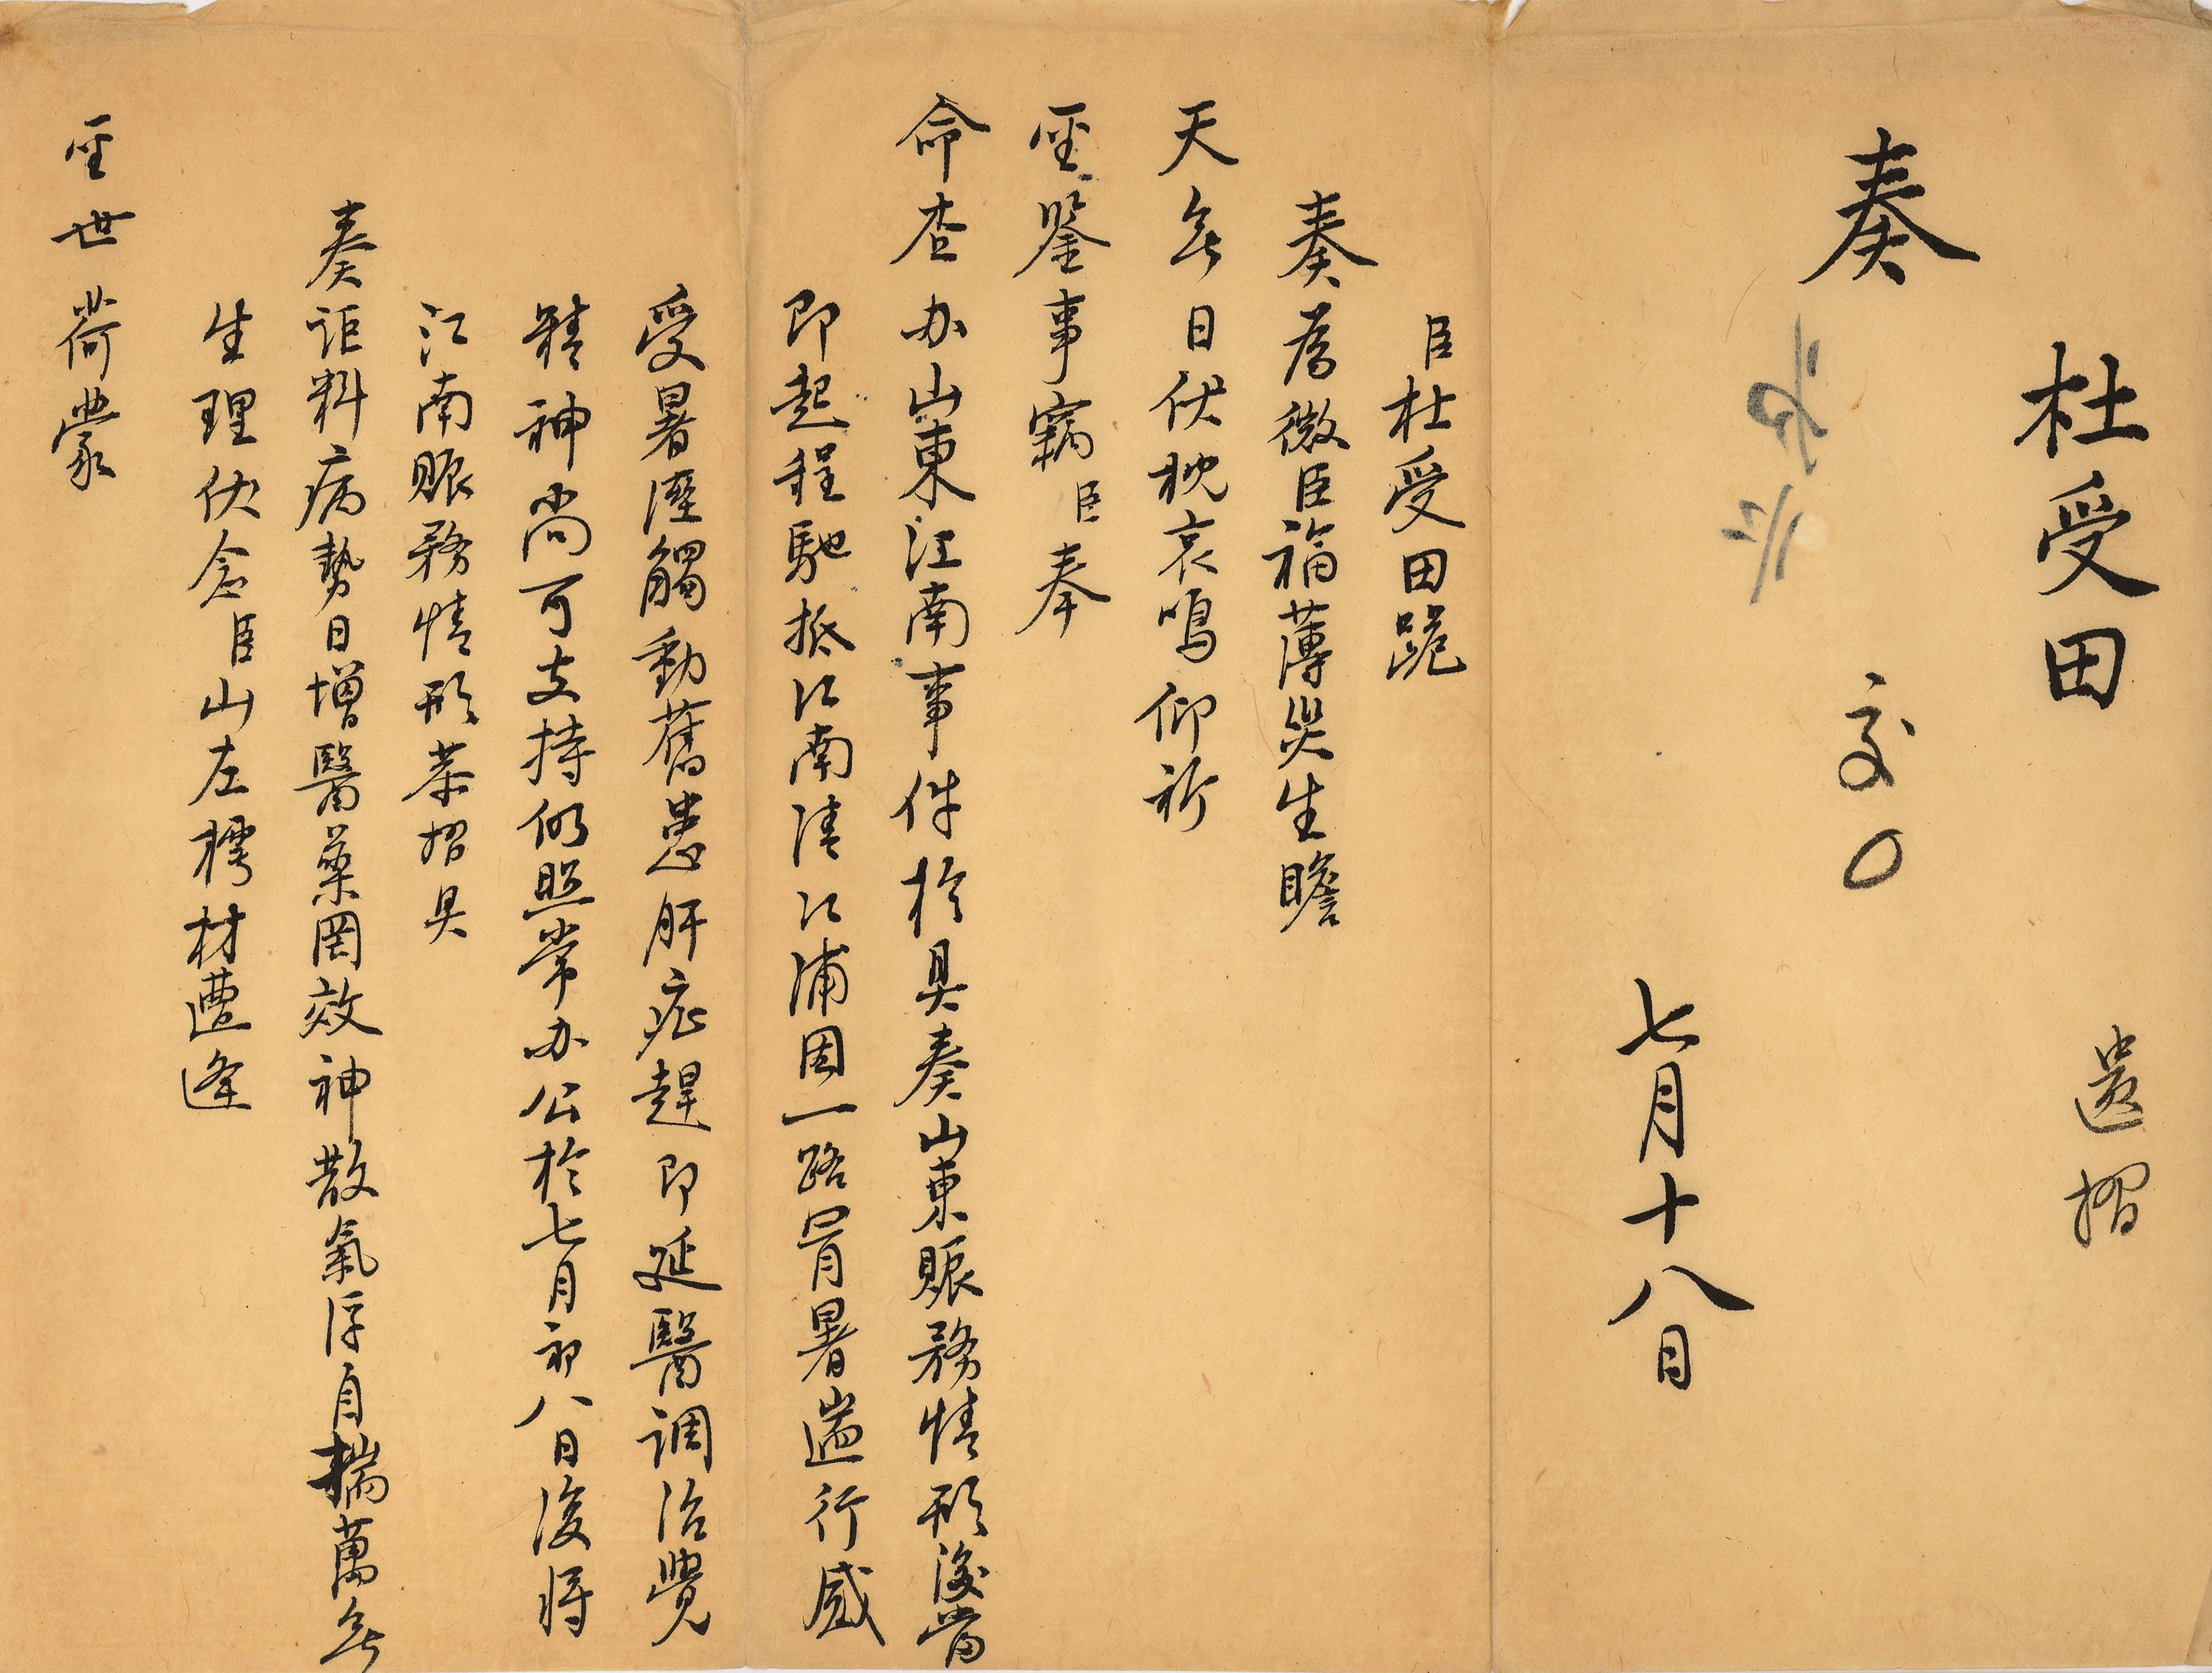 杜受田 遺摺
奏
交〇
七月十八日
臣杜受田跪
奏為微臣福薄災生瞻
天無日伏枕哀鳴仰祈
聖鑒事竊臣奉
命查办山東江南事件於具奏山東賑務情形後當
即起程馳抵江南清江浦因一路冒暑遄行感
受暑溼觸動舊患肝症趕即延醫調治覺
精神尚可支持仍照常办公於七月初八日復將
江南賑務情形恭摺具
奏詎料病勢日增醫藥罔效神散氣浮自揣萬無
生理伏念臣山左樗材遭逢
聖世荷蒙